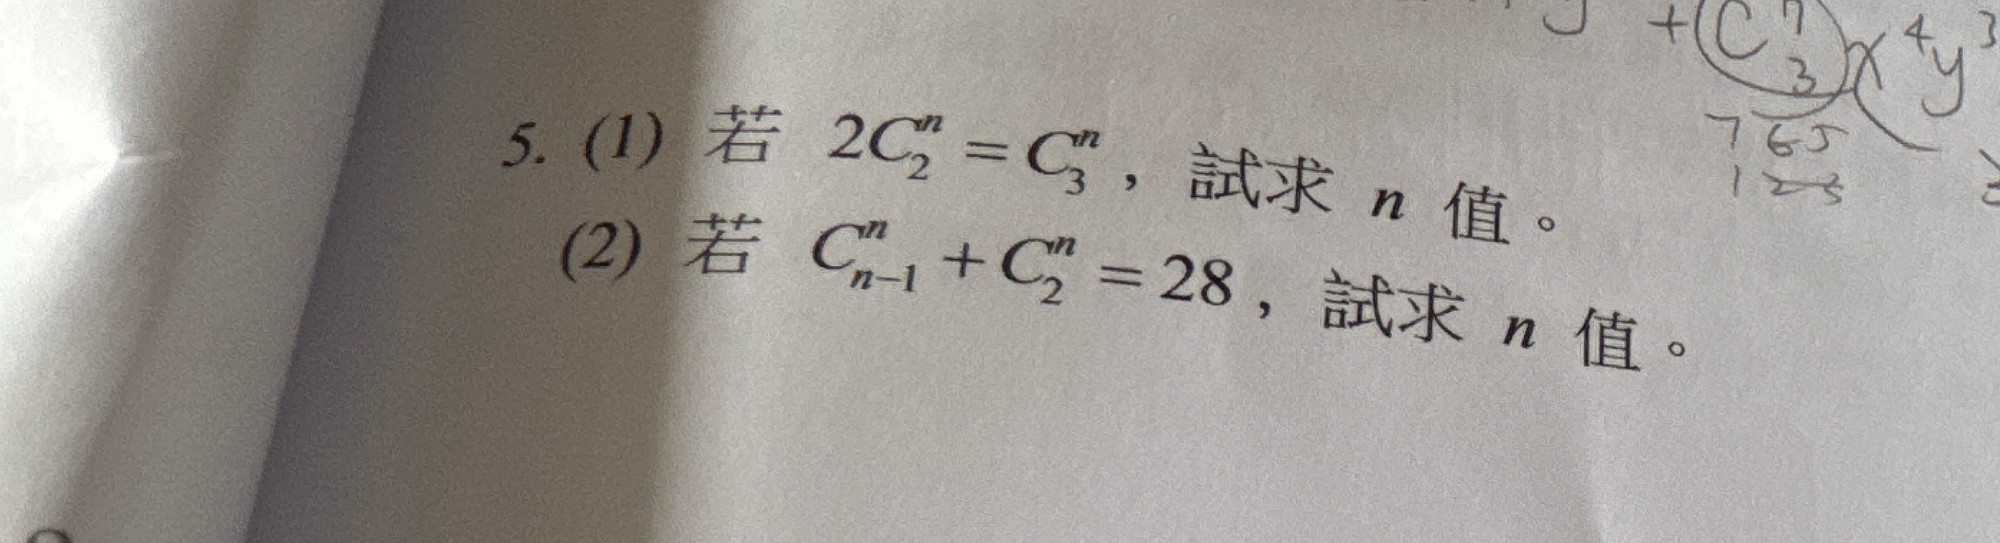 +C⁷₃x⁴y³
7 6 5
1 2 3
5. (1) 若 2C₂ⁿ = C₃ⁿ，試求 n 值。
(2) 若 Cⁿₙ₋₁ + C₂ⁿ = 28，試求 n 值。